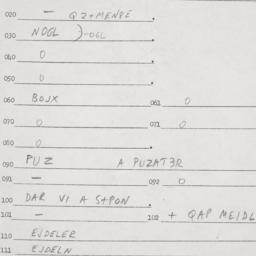 020 — QZ+MENPE
030 NOGL )-OGL
040 0
050 0
060 BOJX 061 0
070 0 071 0
080 0
090 PUZ A PUZAT3R
091 — 092 0
100 DAR VI A S+PON
101 — 102 + QAP MEIDL
110 EJDELER
111 EJDELN